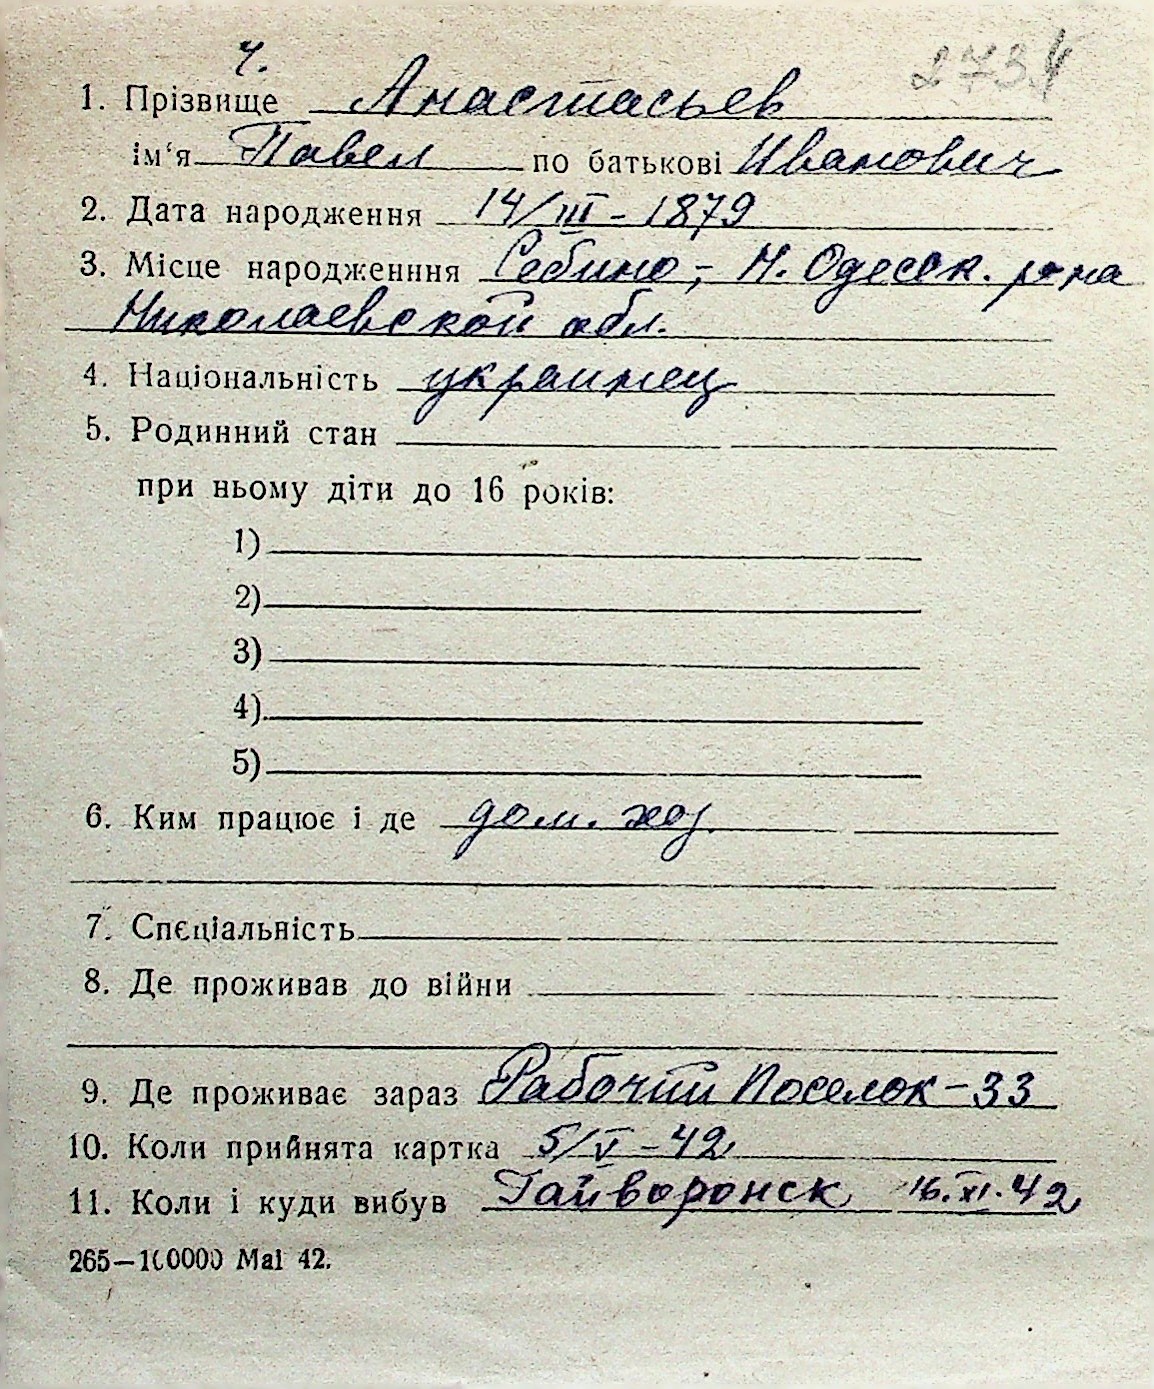 ч.
2734
1. Прізвище Анастасьев
ім‘я Павел по батькові Иванович
2. Дата народження 14/III - 1879
3. Місце народженння Себино, - Н. Одесск. р-на
Николаевской обл.
4. Національність украинец
5. Родинний стан
при ньому діти до 16 років:
1)
2)
3)
4)
5)
6. Ким працює і де дом. хоз.
7. Спєціальність
8. Де проживав до війни
9. Де проживає зараз Рабочий Поселок - 33
10. Коли прийнята картка 5/V - 42
11. Коли і куди вибув Гайворонск 16.XI.42
265—100000 Mai 42.